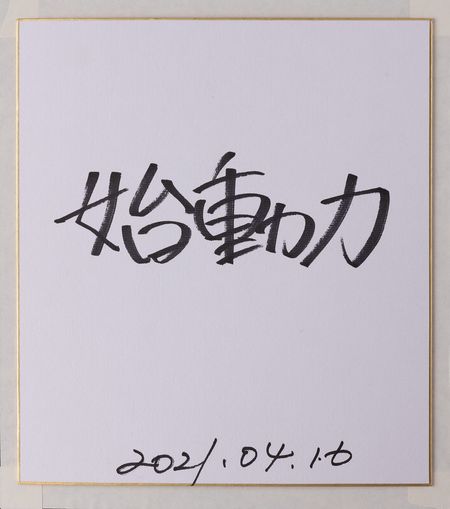 始動力
2021.04.16